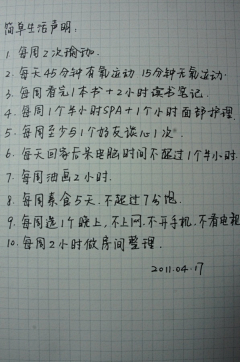 简单生活声明:
1. 每周2次瑜伽.
2. 每天45分钟有氧运动 15分钟无氧运动.
3. 每周看完1本书+2小时读书笔记.
4. 每周1个半小时SPA+1个小时面部护理.
5. 每周至少与1个好友谈心1次.
6. 每天回家后呆电脑时间不超过1个半小时.
7. 每周油画2小时.
8. 每周素食5天. 不超过7分饱.
9. 每周选1个晚上, 不上网. 不开手机. 不看电视
10. 每周2小时做房间整理.
2011.04.17